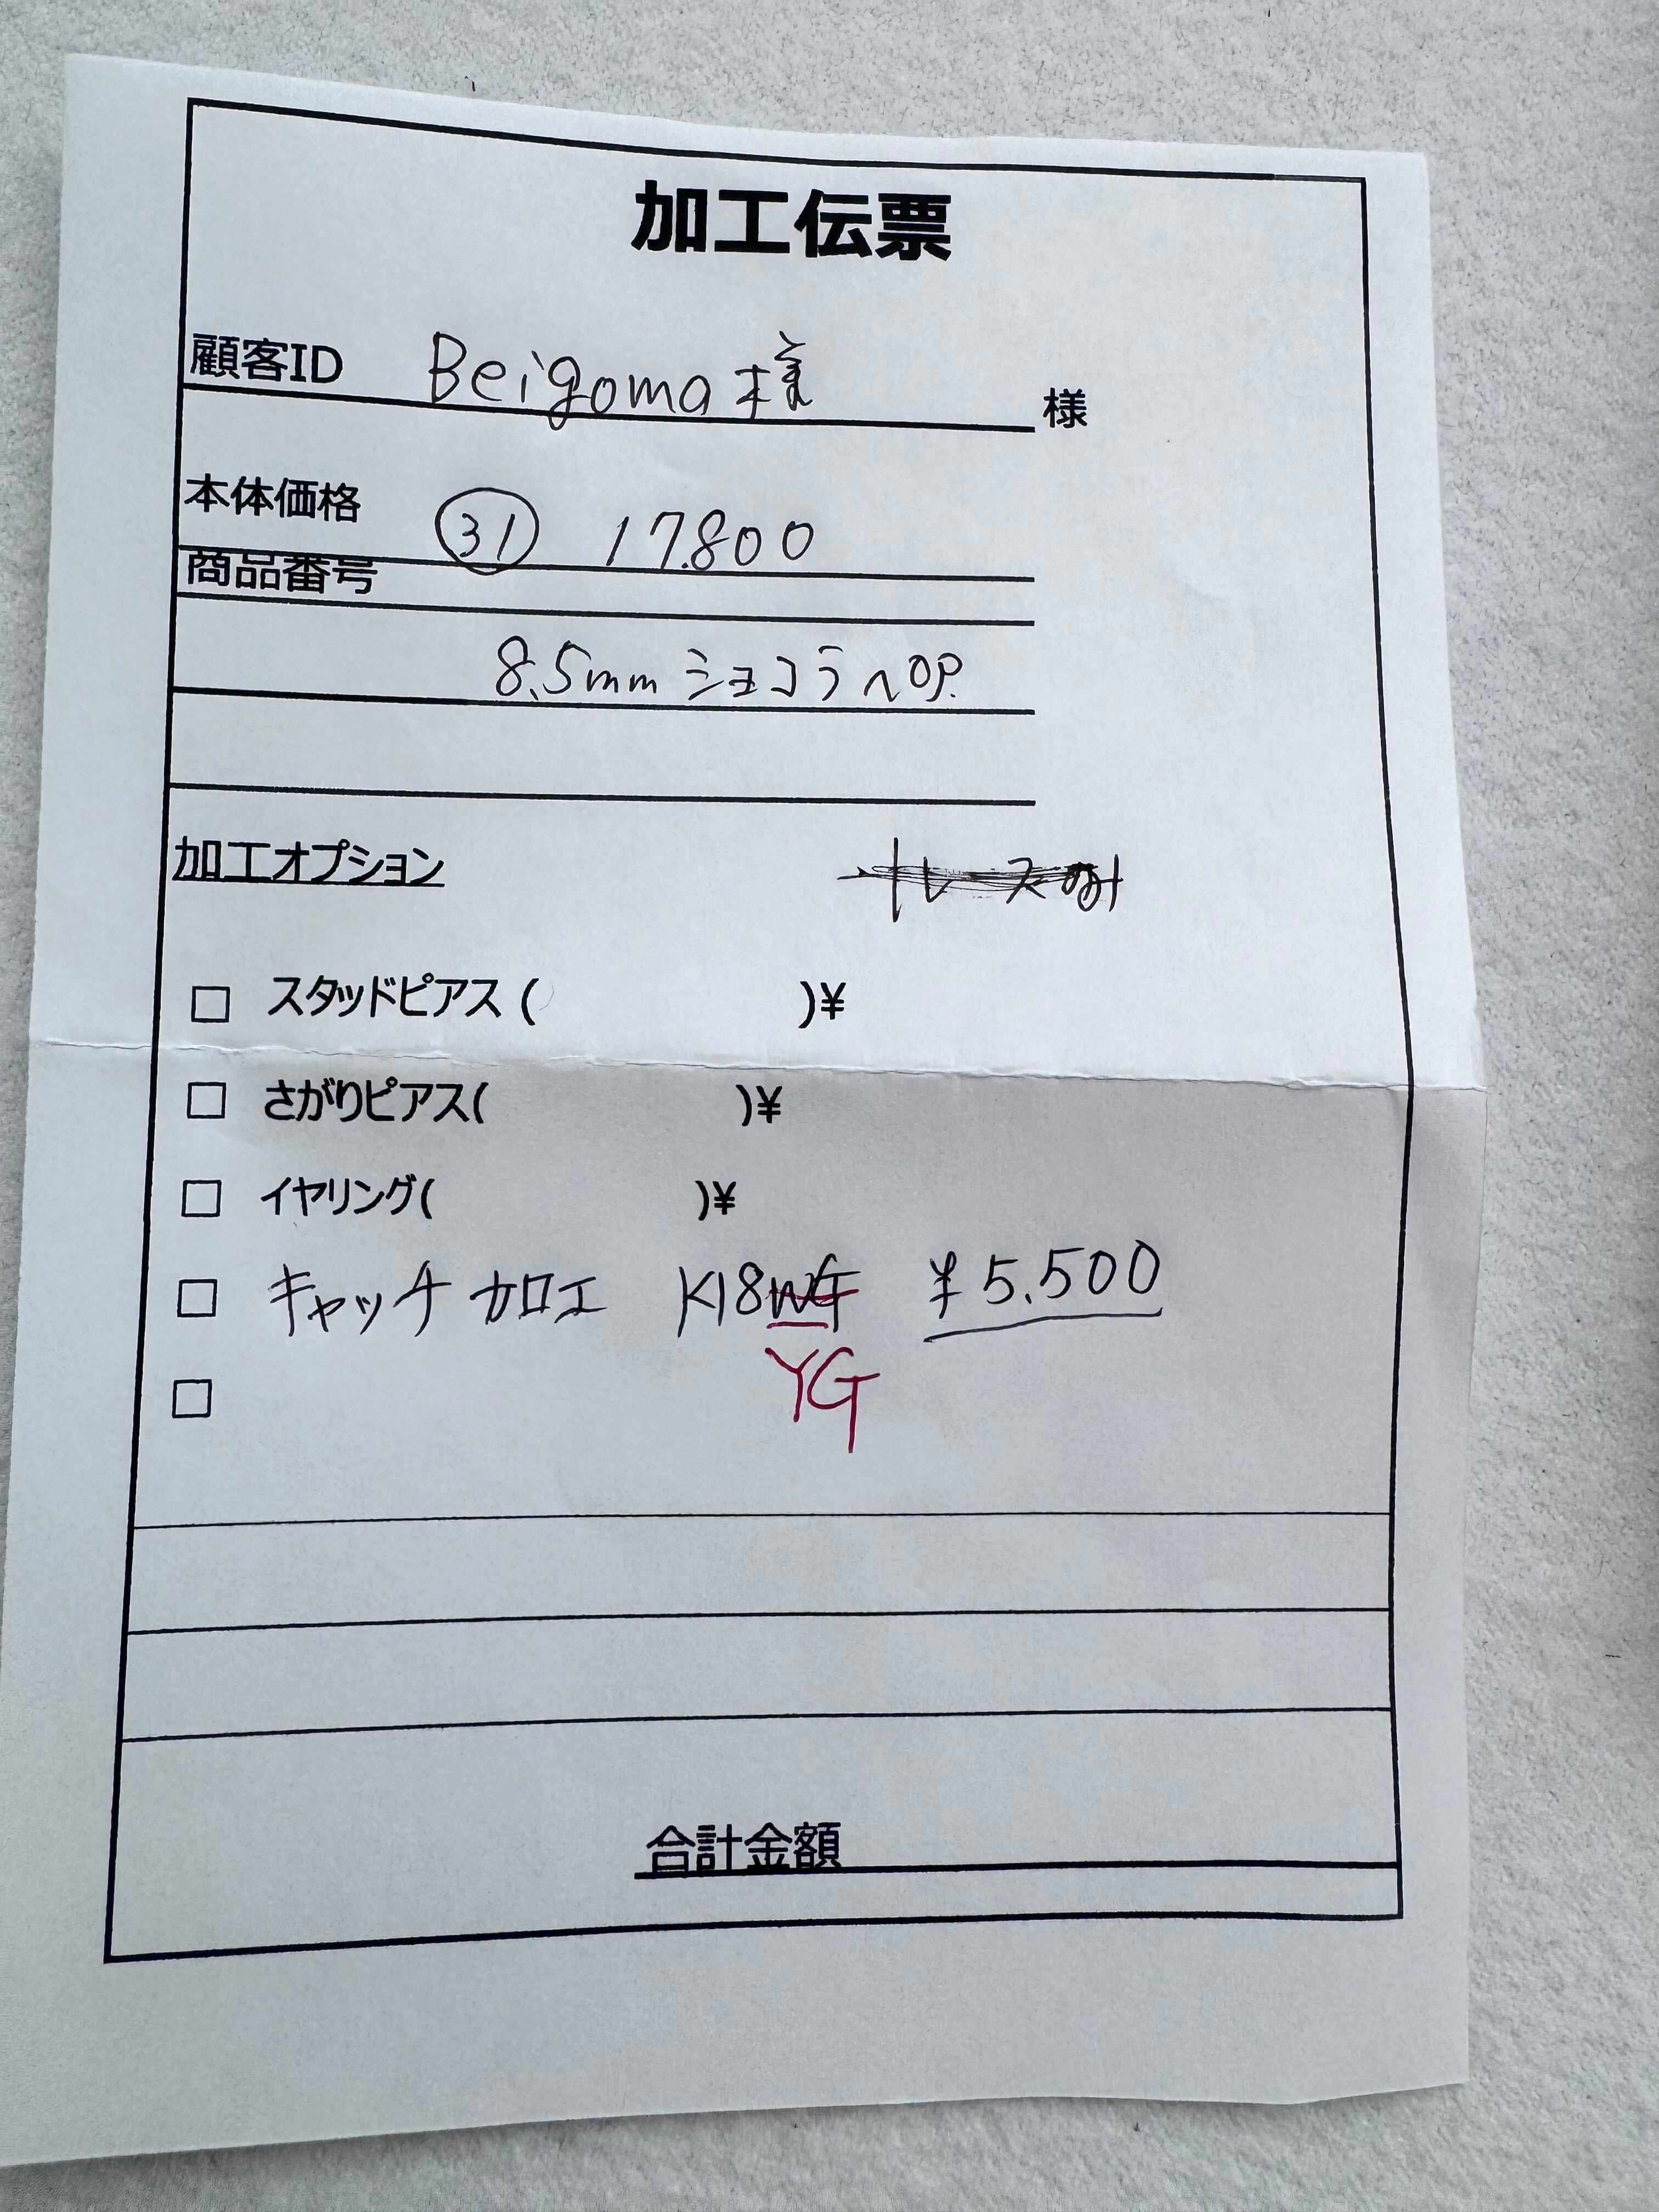 加工伝票
顧客ID Beigoma様 様
本体価格 ㉛ 17.800
商品番号
8.5mm ショコラペOP.
加工オプション
スタッドピアス ( )¥
さがりピアス( )¥
イヤリング( )¥
キャッチ加工 K18WG ¥5.500
YG
合計金額